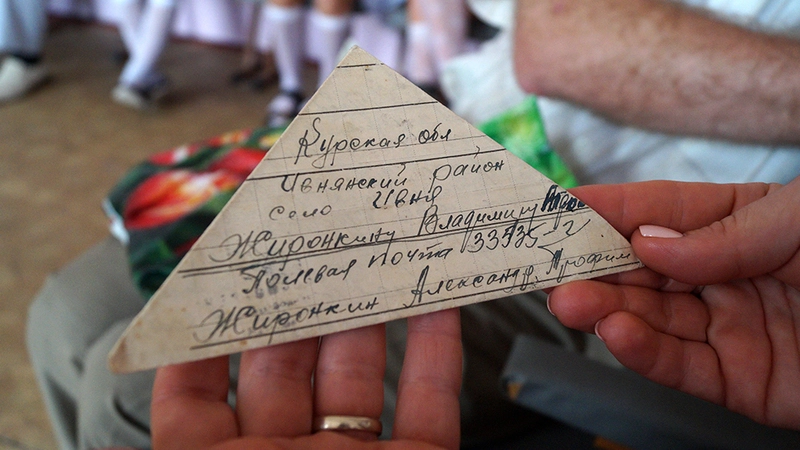 Курская обл
Ивнянский район
село Ивня
Жиронкину Владимиру
Полевая почта
Жиронкин Александр Трофим